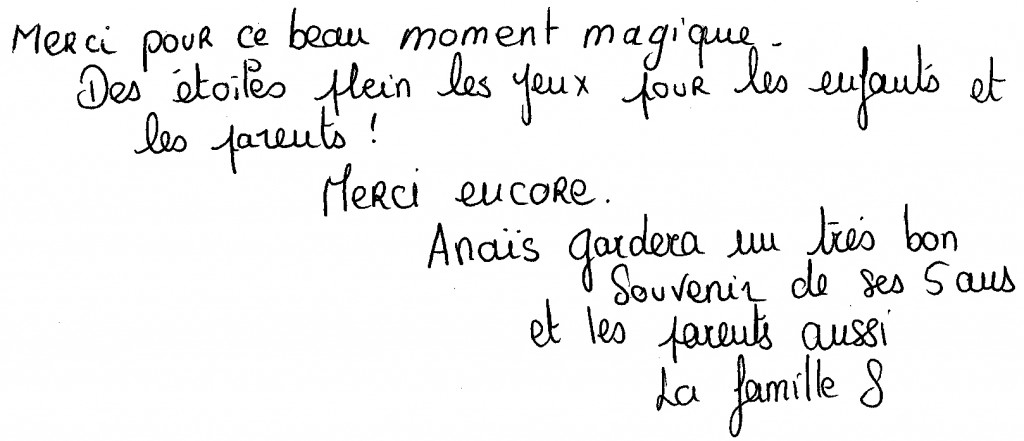 Merci pour ce beau moment magique.
Des étoiles plein les yeux pour les enfants et
les parents !
Merci encore.
Anaïs gardera un très bon
Souvenir de ses 5 ans
et les parents aussi
La famille S